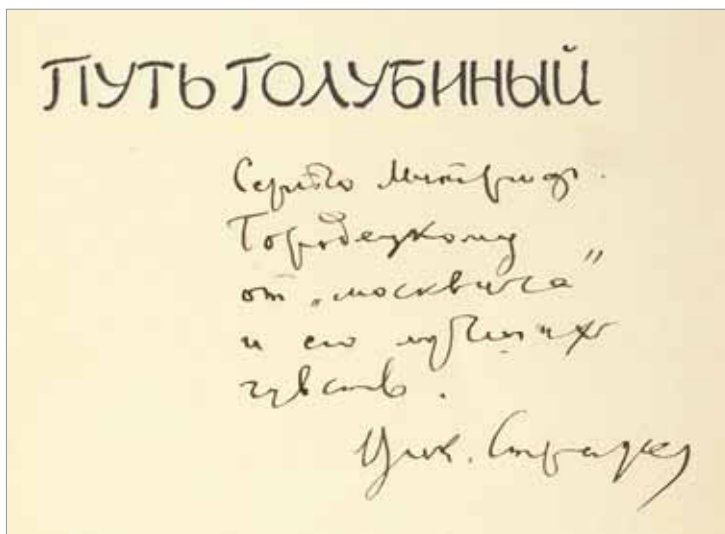 ПУТЬ ГОЛУБИНЫЙ
Сергею Митроф.
Городецкому
от „москвича"
и его лучших
чувств.
Вик. Стражев